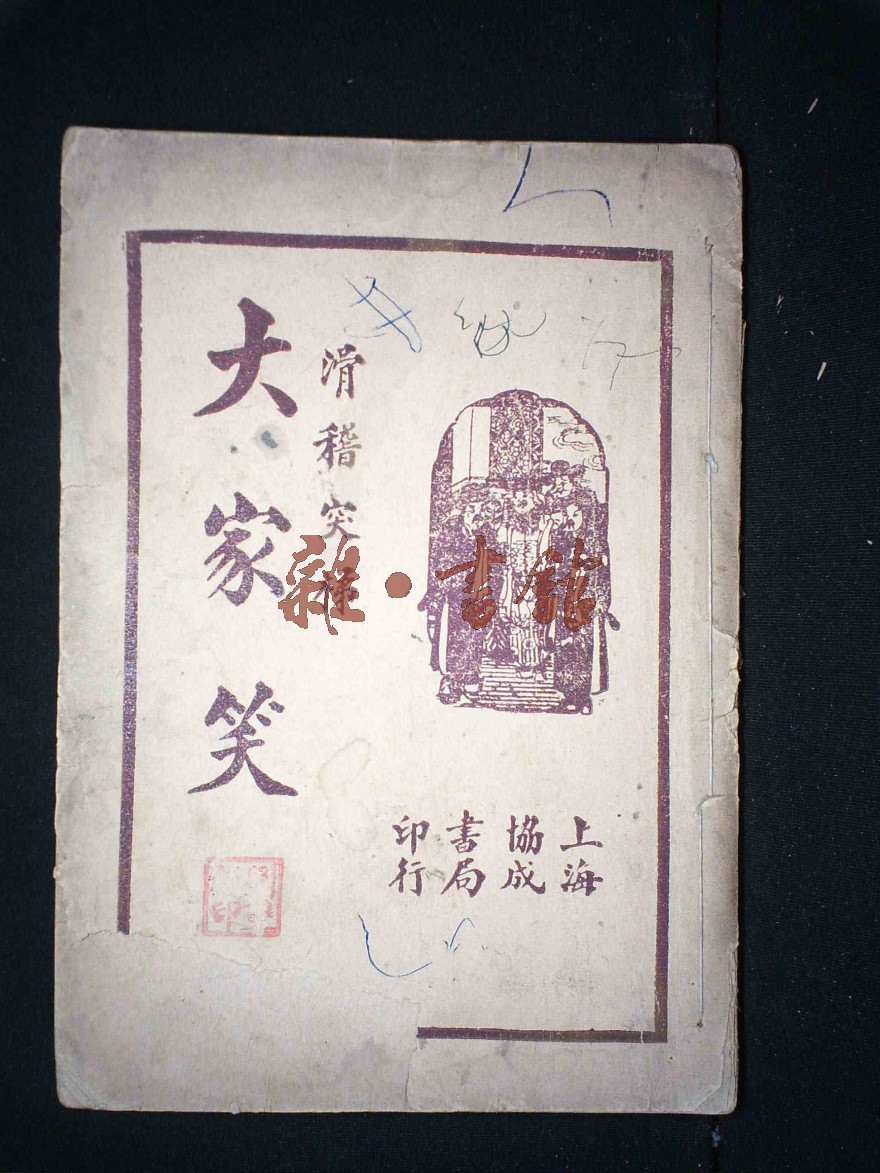 上海
協成
書局
印行
滑稽突梯
大家笑
雜·書館
印